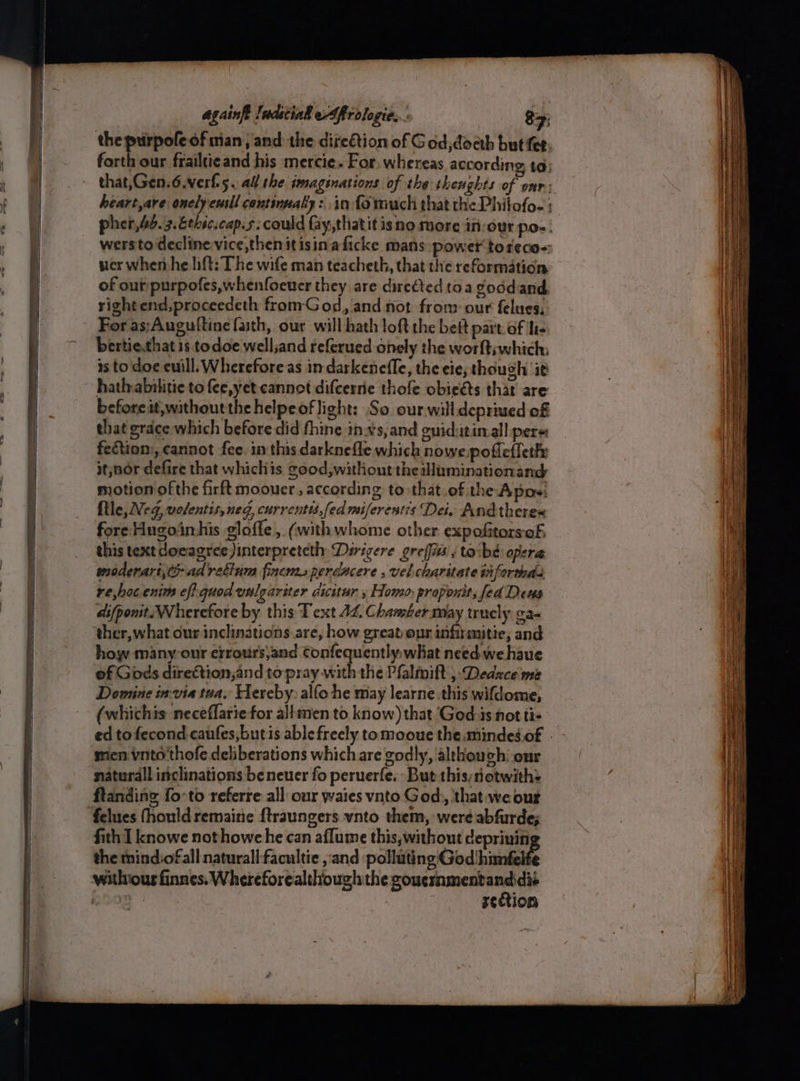 against Iudiciall Astrologie. 87
the purpose of man, and the direction of God, doeth but set
forth our frailtie and his mercie. For whereas according to
that, Gen.6.vers.5. all the imaginations of the thoughts of our
heart, are onely euill continually: in so much that the Philoso-
pher, lib.3. Ethic.cap.5. could say, that it is no more in our po-
wers to decline vice, then it is in a sicke mans power to reco-
uer when he list: The wise man teacheth, that the reformation
of our purposes, whensoeuer they are directed to a good and
right end, proceedeth from God, and not from our selues.
For as Augustine saith, our will hath lost the best part of li-
bertie, that is to doe well, and reserued onely the worst, which
is to doe euill. Wherefore as in darkenesse, the eie, though it
hath abilitie to see, yet cannot discerne those obiects that are
before it, without the helpe of light: So our will depriued of
that grace which before did shine in vs, and guid it in all per-
fection, cannot see in this darknesse which nowe possesseth
it, nor desire that which is good, without the illumination and
motion of the first moouer, according to that of the Apo-
stle, Neq, volentis, neq, currentis, sed miserentis Dei. And there-
fore Hugo in his glosse, (with whome other expositors of
this text doe agree) interpreteth Dirigere gressus, to be opera
moderari, & ad rectum finem perducere, vel charitate informa-
re, hoc enim est quod vulgariter dicitur, Homo proponit, sed Deus
disponit. Wherefore by this Text M. Chamber may truely ga-
ther, what our inclinations are, how great our infirmitie, and
how many our errours, and consequently what need we haue
of Gods direction, and to pray with the Psalmist, Deduc me
Domine in via tua. Hereby also he may learne this wisdome,
(which is necessarie for all men to know) that God is not ti-
ed to second causes, but is able freely to mooue the mindes of
men vnto those deliberations which are godly, although our
naturall inclinations be neuer so peruerse. But this, notwith-
standing so to referre all our waies vnto God, that we our
selues should remaine straungers vnto them, were absurde,
sith I knowe not howe he can assume this, without depriuing
the mind of all naturall facultie, and polluting God himselfe
with our sinnes. Wherefore although the gouernment and di-
rection